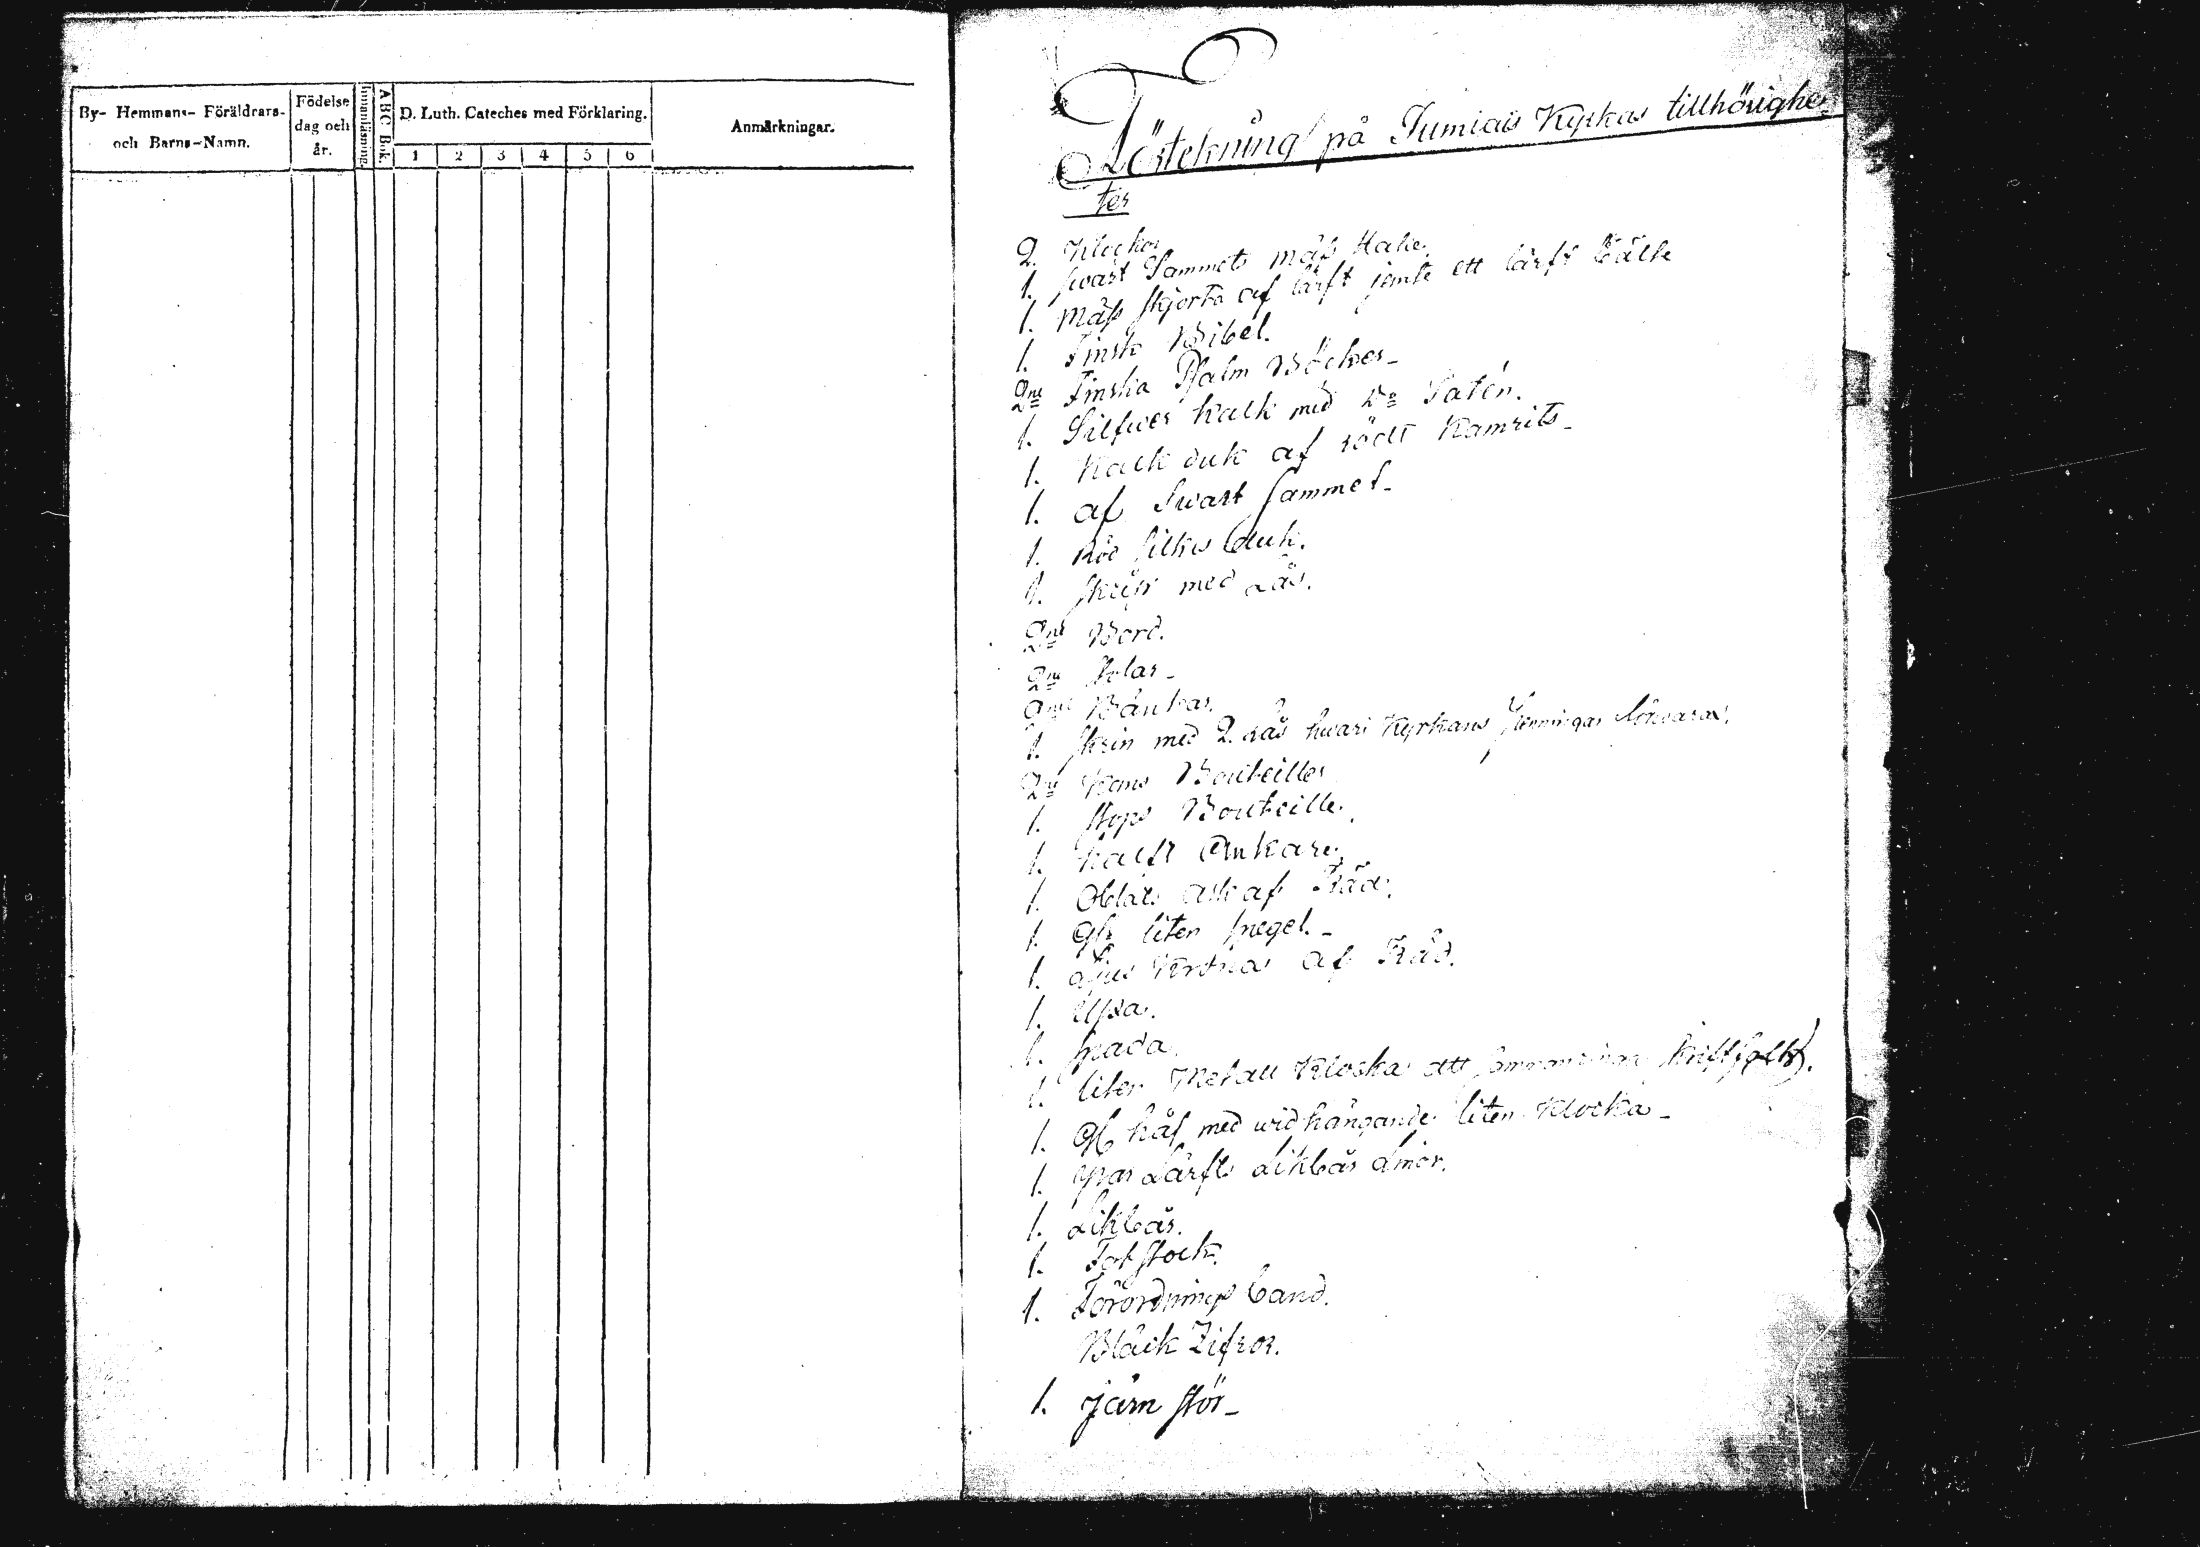 By- Hemmans- Föräldrars-
och Barns-Namn.
Födelse
dag och
år.
Innanläsning.
ABC Bok.
D. Luth. Cateches med Förklaring.
1 2 3 4 5 6
Anmärkningar.
Förtekning på Kyrkas tillhörighe-
ter
2. Klockor
1. swart Sammets mäss Hake.
1. mäss skjorta af lärft jemte ett lärft bälte
1. Finsk Bibel.
2ne Finska Psalm Böcker_
1. Silfwer kalk med Do Patén.
1. Kalk duk af rödt Kamrits_
1. af Swart sammet_
1. Röd silkes duk.
1. skåp med Lås.
2ne Bord.
2ne stolar_
2ne Bänkar.
1. skrin med 2. Lås hwari Kyrkans Penningar förwaras.
2ne Kans Bouteiller
1. stops Bouteille.
1. halft Ankare.
1. Oblats ask af Träd.
1. gl. liten spegel._
1. Ljus Kronor af Träd.
1. Yxa.
1. spada.
1. liten Metall Klocka att skriftfolket.
1. gl håf med widhängande liten Klocka_
1. par Lärfts Likbårs Linor.
1. Likbår.
1. Fotstock.
1. Förordnings band.
Bläck Zifror.
1. järn stör_